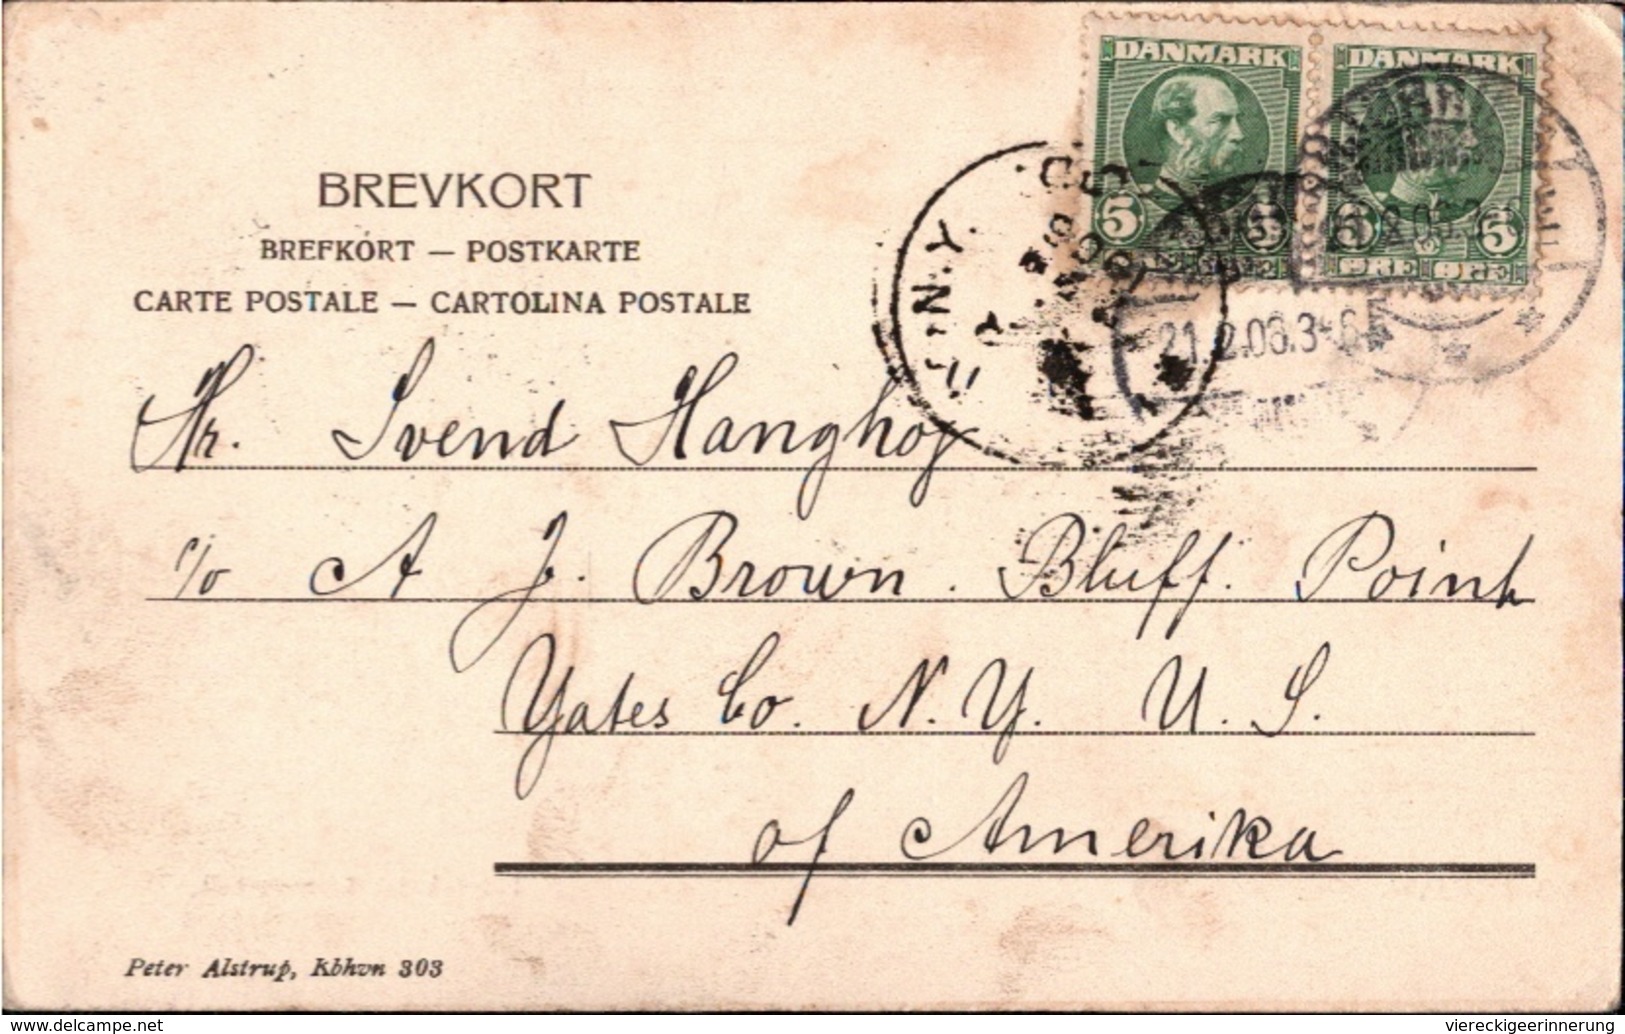 DANMARK DANMARK
5 5 5 5
ØRE ØRE
BREVKORT
BREFKORT — POSTKARTE
CARTE POSTALE — CARTOLINA POSTALE
N.Y.
21.2.06.3-6
Hr. Svend Hanghoj
c/o A J. Brown. Bluff. Point
Yates Co. N. Y. U. S.
of Amerika
Peter Alstrup, Kbhvn 303
viereckigeerinnerung